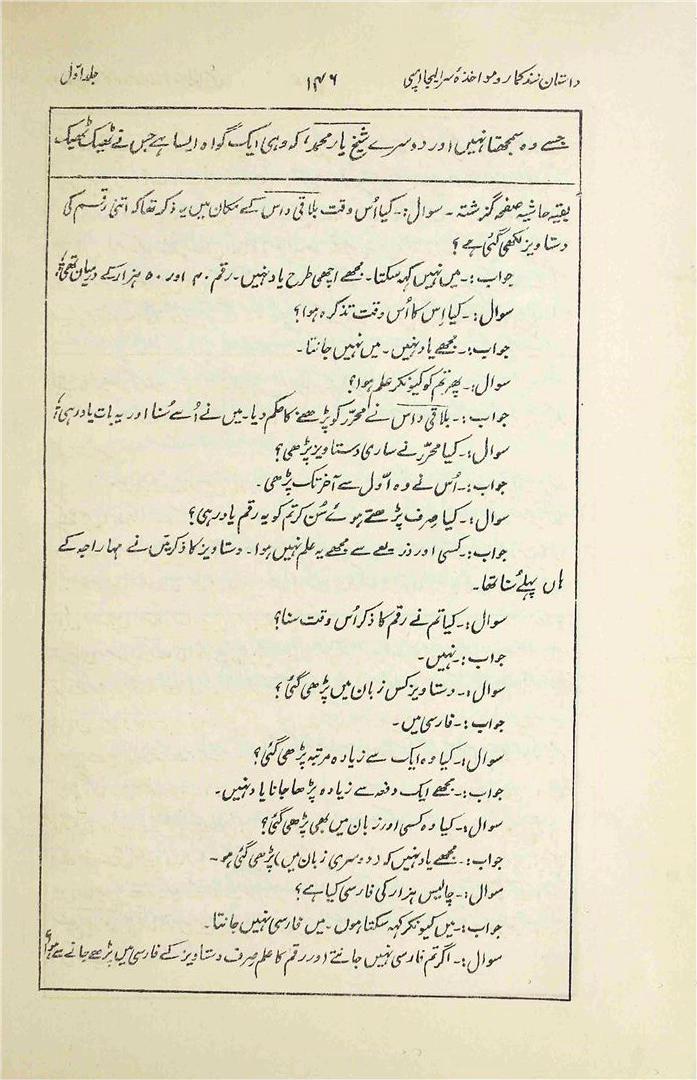 داستان نند کمار و مواخذۂ سر ایلیجا اِمپی ۱۴۶ جلد اوّل
جسے وہ سمجھتا نہیں اور دوسرے شیخ یار محمد، کہ وہی ایک گواہ ایسا ہے جس نے ٹھیک ٹھیک
بقیہ حاشیہ صفحہ گزشتہ ۔ سوال:۔ کیا اُس وقت بلاقی داس کے مکان میں یہ ذکر تھا کہ اتنی رقم کی
دستاویز لکھی گئی ہے؟
جواب:۔ میں نہیں کہہ سکتا۔ مجھے اچھی طرح یاد نہیں۔ رقم ۴۰ اور ۵۰ ہزار کے درمیان تھی؟
سوال:۔ کیا اِس کا اُس وقت تذکرہ ہوا؟
جواب:۔ مجھے یاد نہیں۔ میں نہیں جانتا۔
سوال:۔ پھر تم کو کیونکر علم ہوا؟
جواب:۔ بلاقی داس نے محرّر کو پڑھنے کا حکم دیا۔ میں نے اُسے سُنا اور یہ بات یاد رہی؟
سوال:۔ کیا محرّر نے ساری دستاویز پڑھی؟
جواب:۔ اُس نے وہ اوّل سے آخر تک پڑھی۔
سوال:۔ کیا صِرف پڑھتے ہوئے سُن کر تم کو یہ رقم یاد رہی؟
جواب:۔ کسی اور ذریعے سے مجھے یہ علم نہیں ہوا۔ دستاویز کا ذکر میں نے مہاراجہ کے
ہاں پہلے سُنا تھا۔
سوال:۔ کیا تم نے رقم کا ذکر اُس وقت سنا؟
جواب:۔ نہیں۔
سوال:۔ دستاویز کس زبان میں پڑھی گئی؟
جواب:۔ فارسی میں۔
سوال:۔ کیا وہ ایک سے زیادہ مرتبہ پڑھی گئی؟
جواب:۔ مجھے ایک دفعہ سے زیادہ پڑھا جانا یاد نہیں۔
سوال:۔ کیا وہ کسی اور زبان میں بھی پڑھی گئی؟
جواب:۔ مجھے یاد نہیں کہ (دوسری زبان میں) پڑھی گئی ہو۔
سوال:۔ چالیس ہزار کی فارسی کیا ہے؟
جواب:۔ میں کیونکر کہہ سکتا ہوں۔ میں فارسی نہیں جانتا۔
سوال:۔ اگر تم فارسی نہیں جانتے اور رقم کا علم صِرف دستاویز کے فارسی میں پڑھے جانے سے ہوا